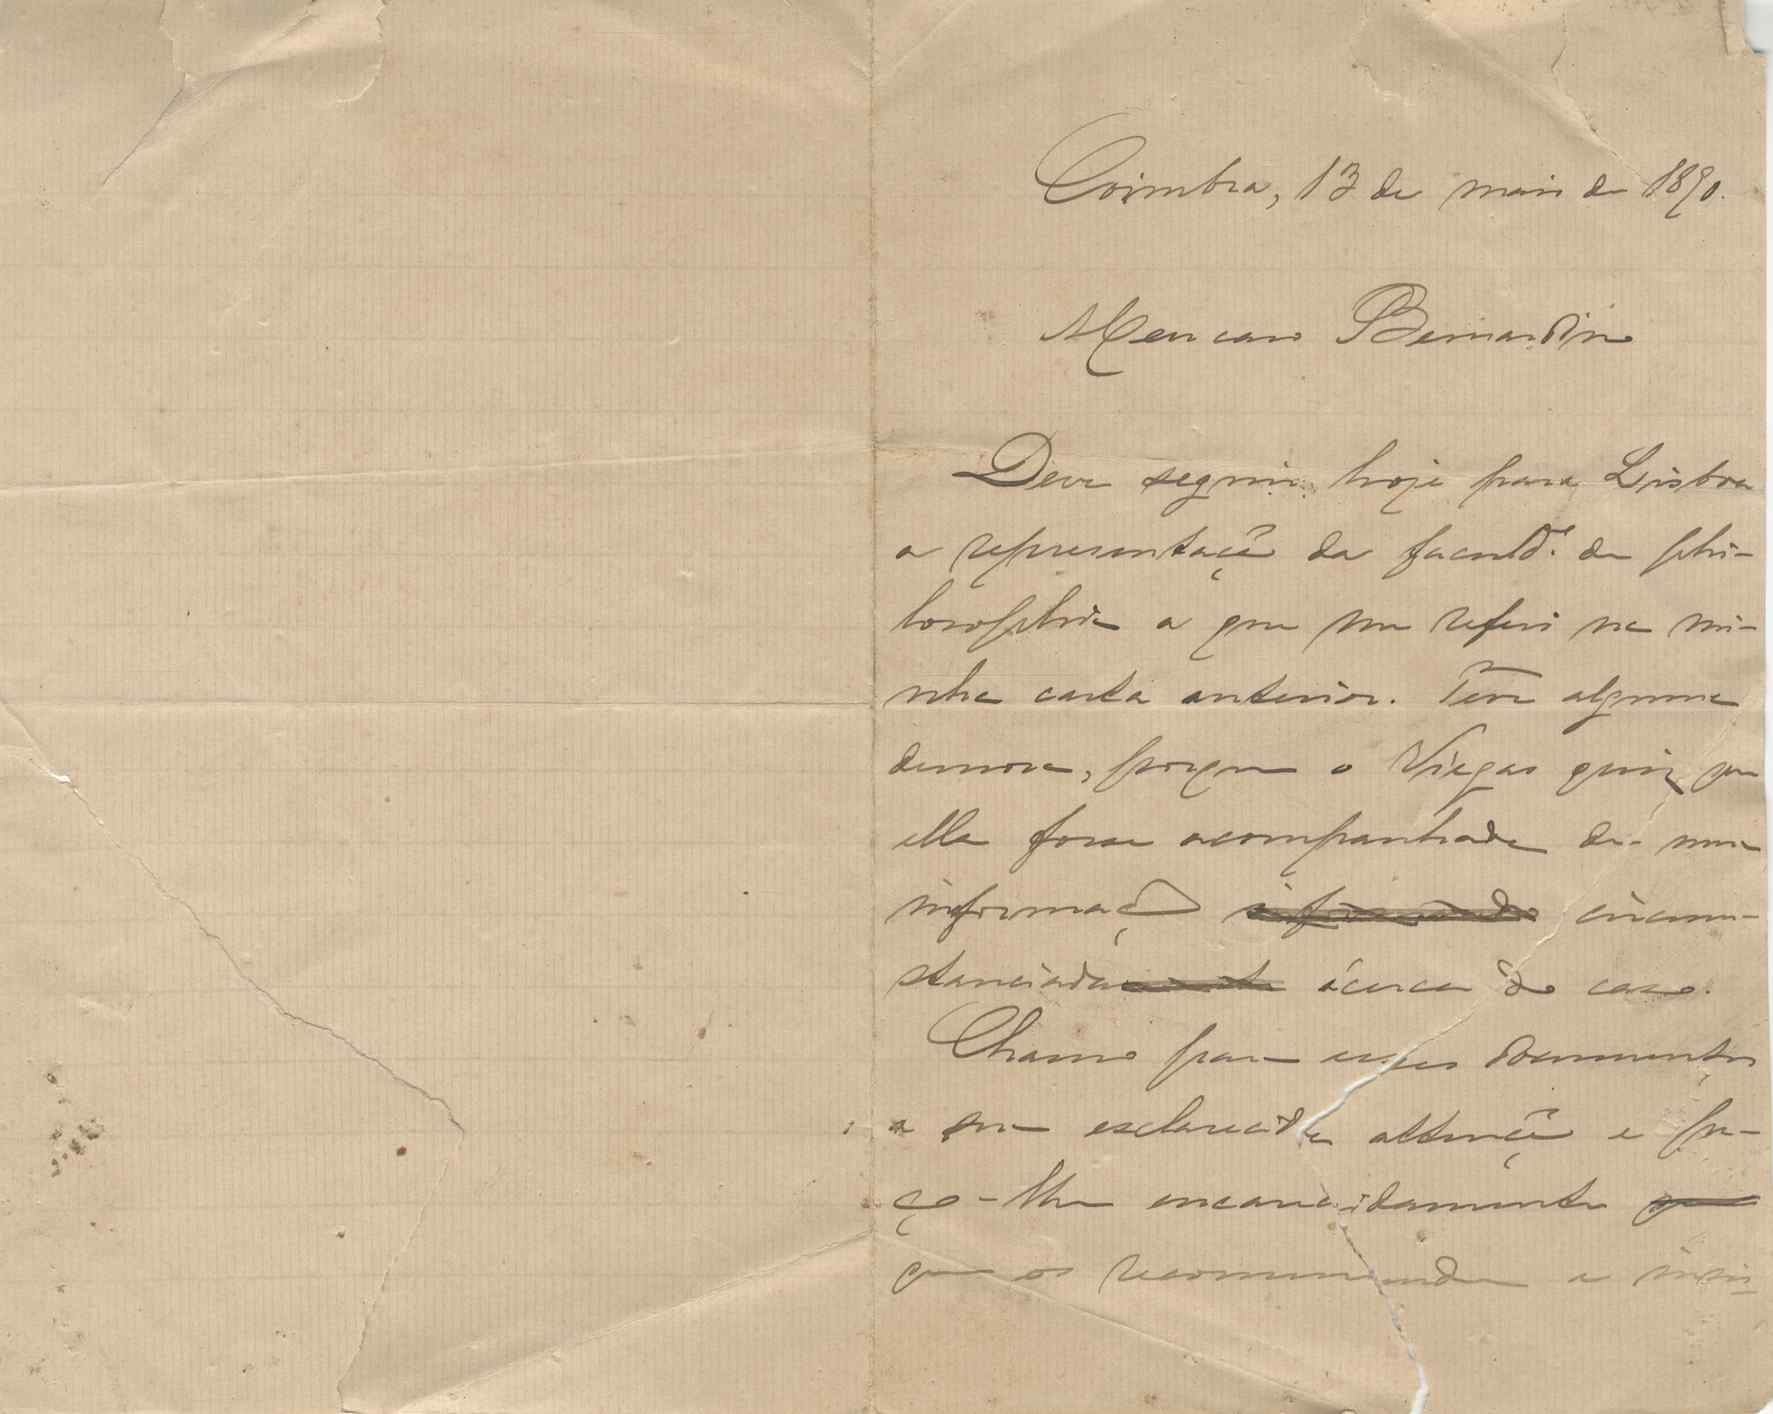 Coimbra, 13 de maio de 1890.
Meu caro Bernardino
Deve seguir hoje para Lisboa
a representação da faculd.e de phi-
losophia a que me referi na mi-
nha carta anterior. Teve alguma
demora, porque o Viegas quiz que
ella fosse acompanhada de uma
informação informando circum-
stanciadamente ácerca do caso.
Chamo para esses documentos
a sua esclarecida attenção e pe-
ço-lhe encarecidamente que
que os recommende e insis-